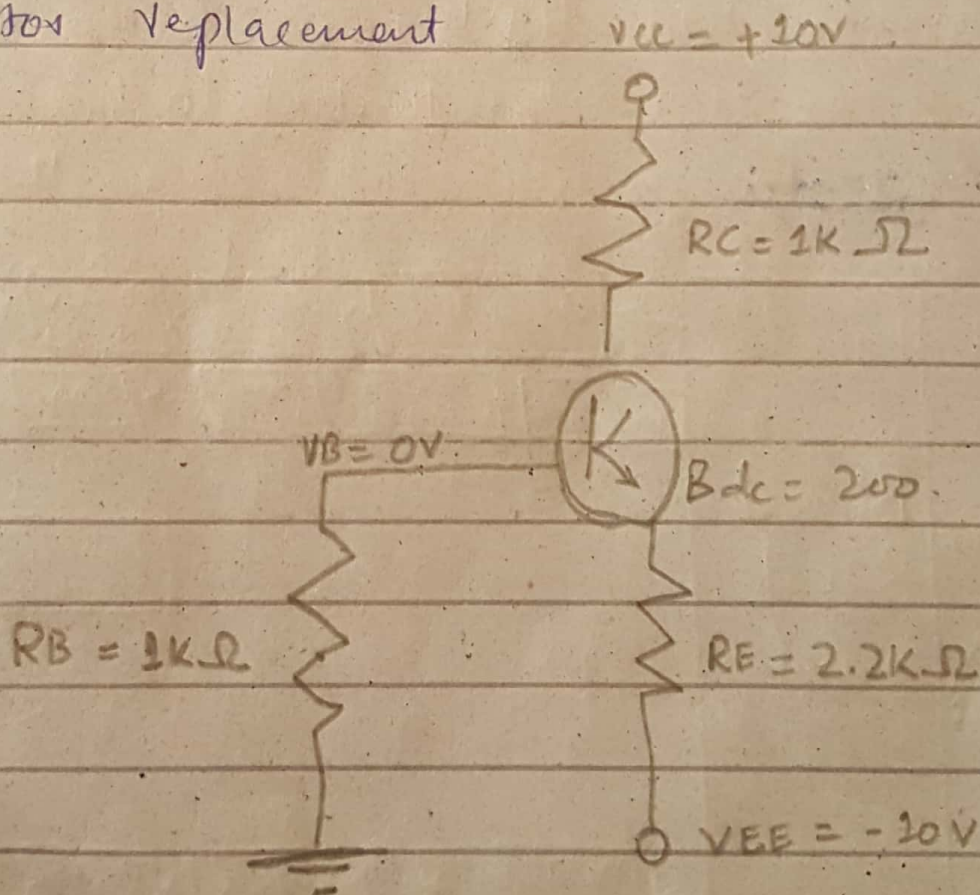 replacement
VCC = +10V
RC = 1K Ω
VB = 0V
Bdc = 200
RB = 1KΩ
RE = 2.2KΩ
VEE = -10V